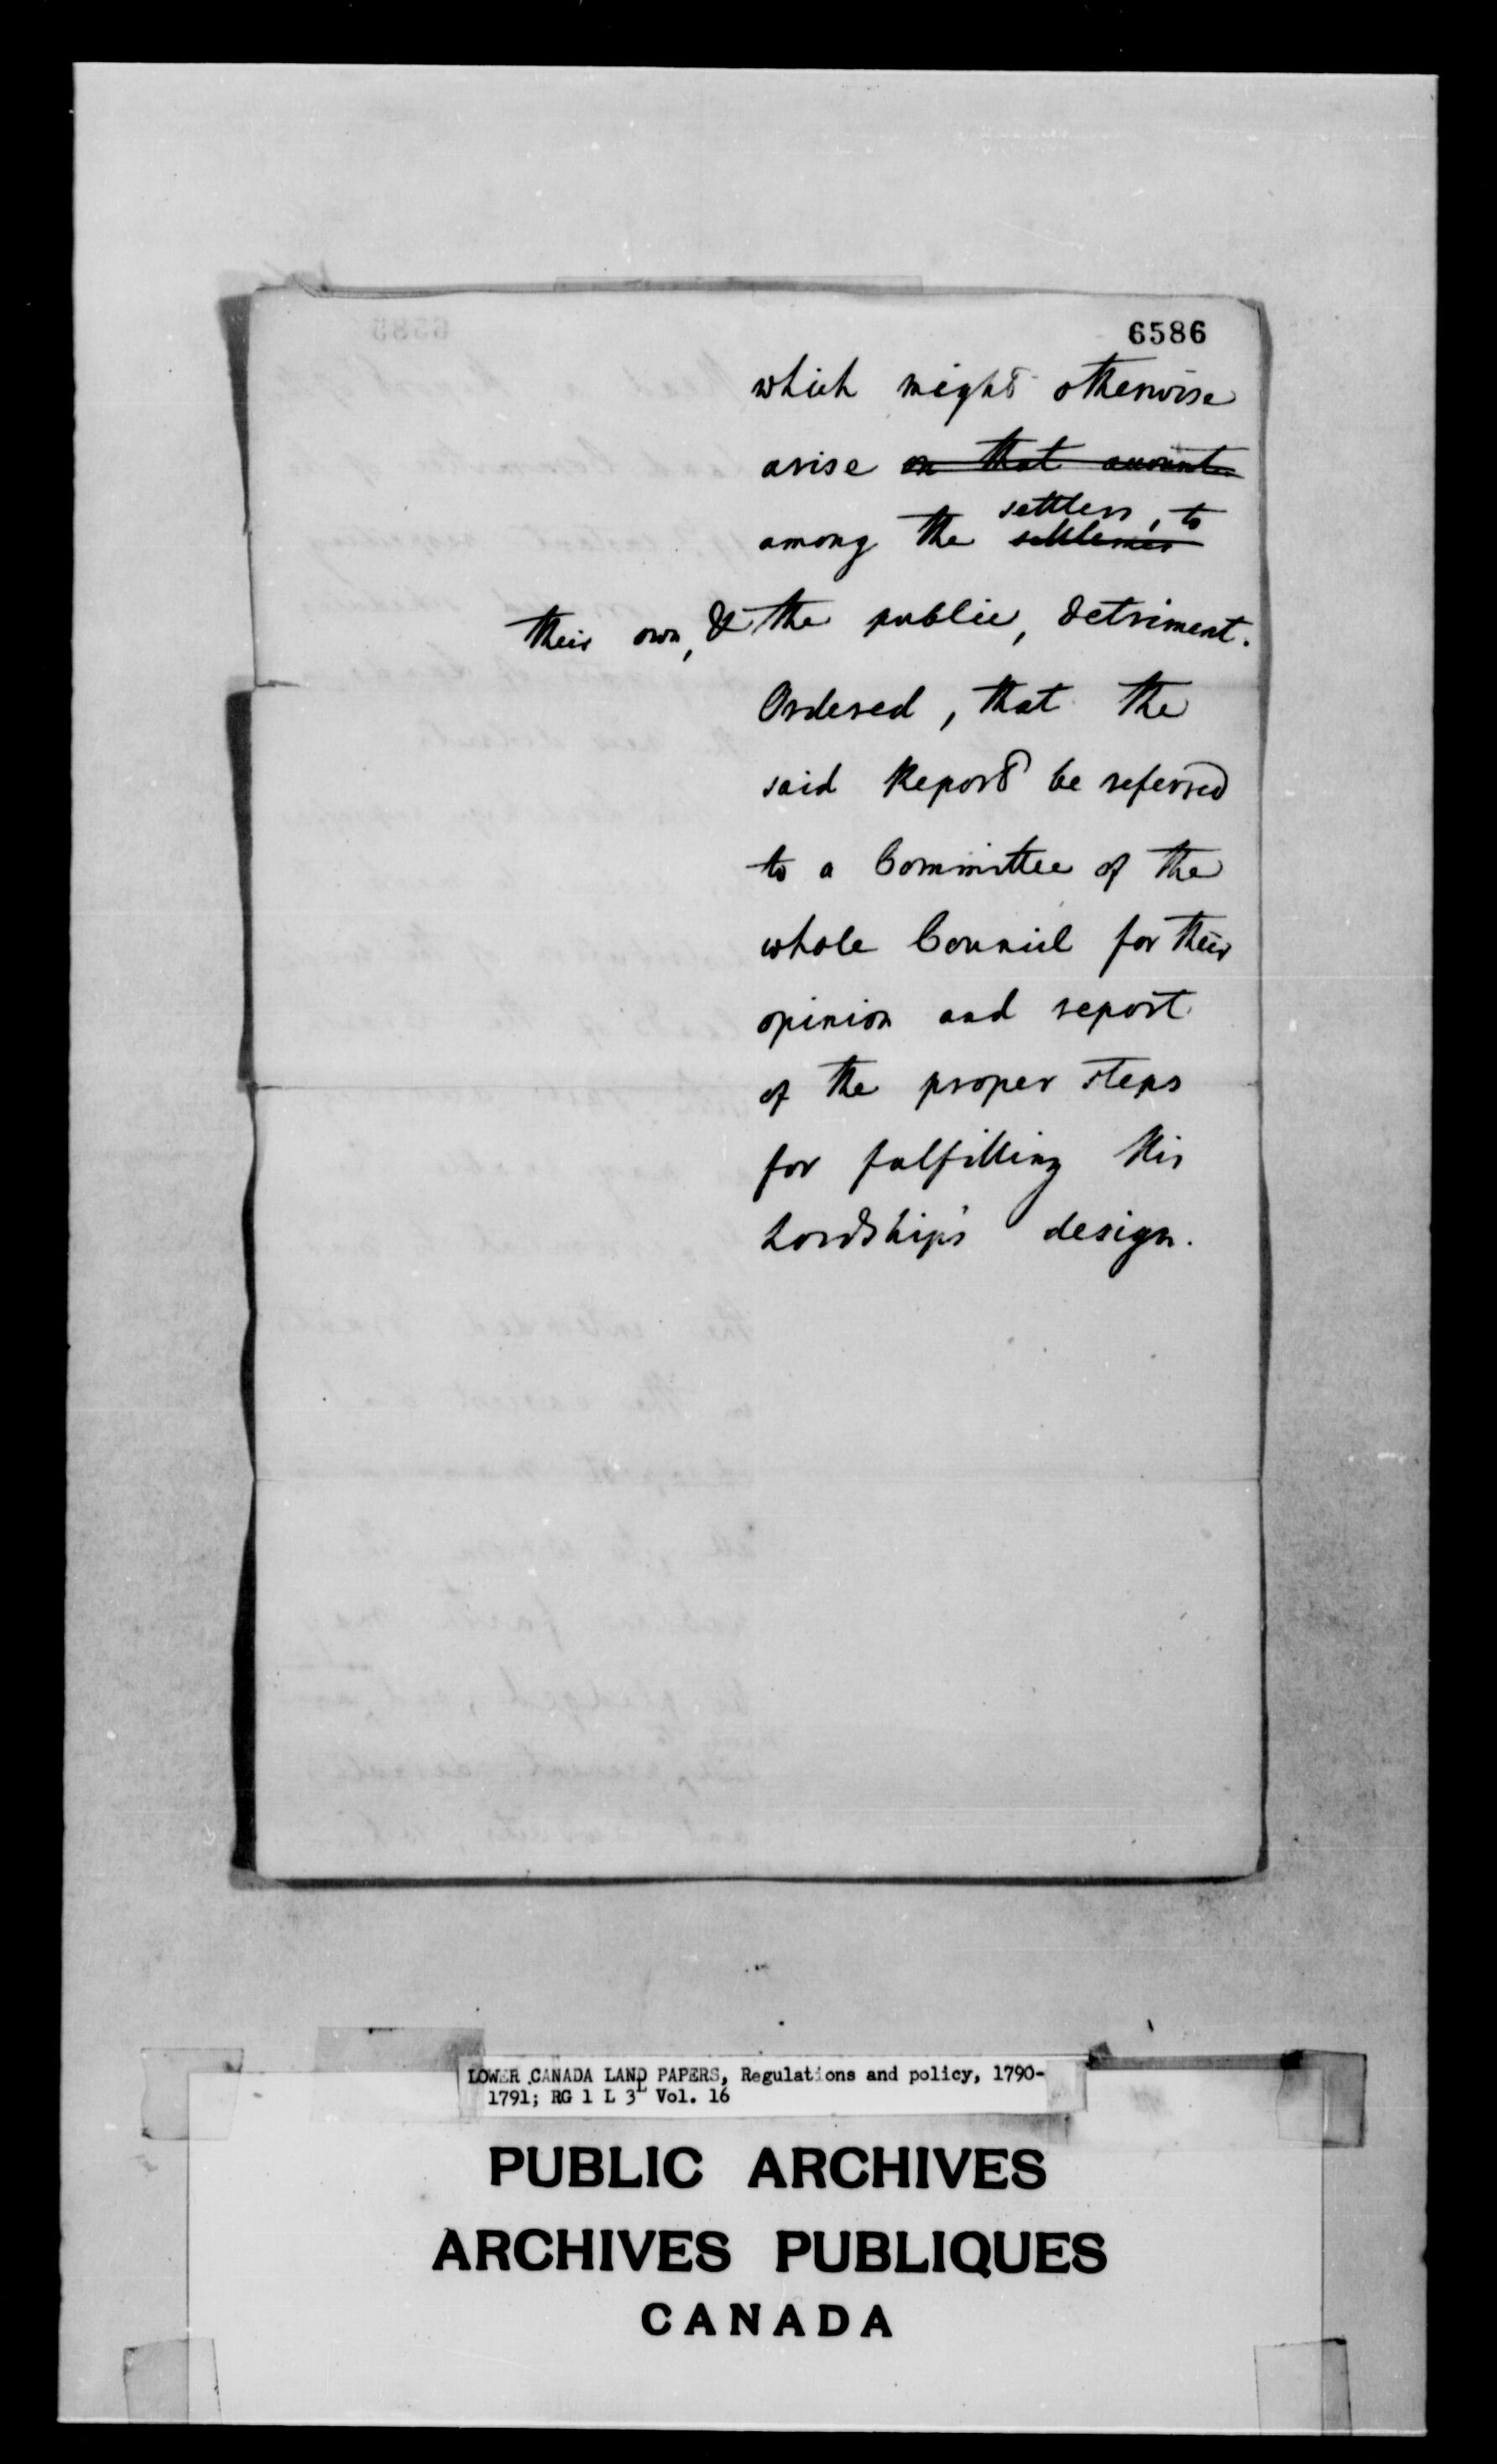 6586
which might otherwise
arise ~~on that account~~
settlers, to
among the ~~settlements~~
their own, & the public, detriment.
Ordered, that the
said Report be referred
to a Committee of the
whole Council for their
opinion and report
of the proper steps
for fulfilling His
Lordship's design.
LOWER CANADA LAND PAPERS, Regulations and policy, 1790-
1791; RG 1 L 3L Vol. 16
PUBLIC ARCHIVES
ARCHIVES PUBLIQUES
CANADA